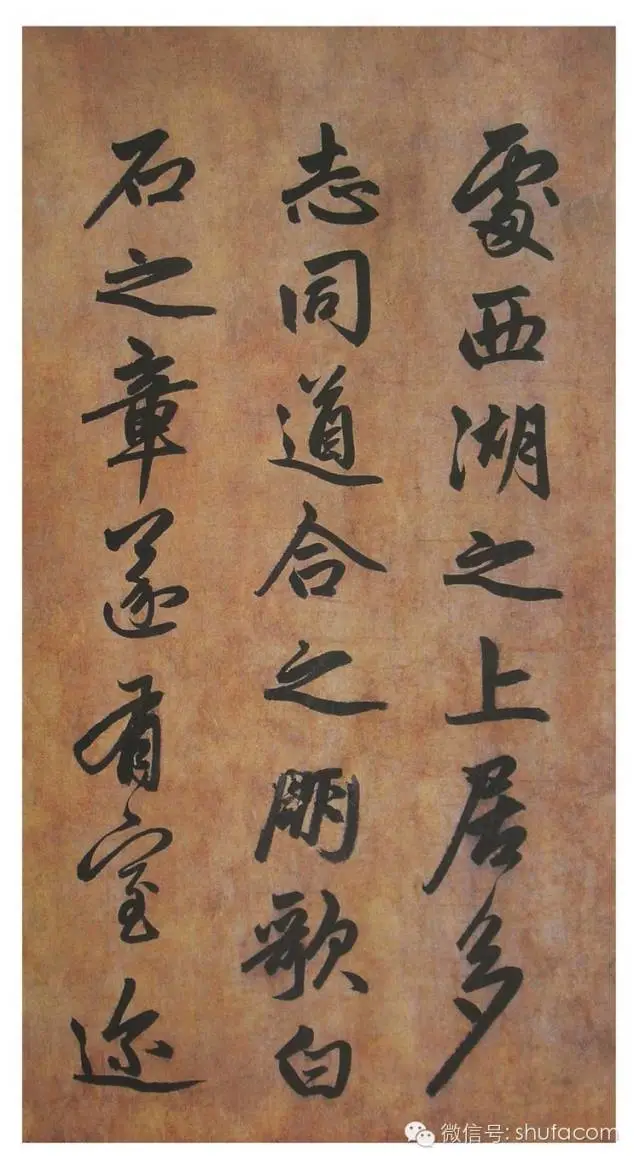 處西湖之上居多
志同道合之朋歌白
石之章遂有室迩
微信号: shufacom